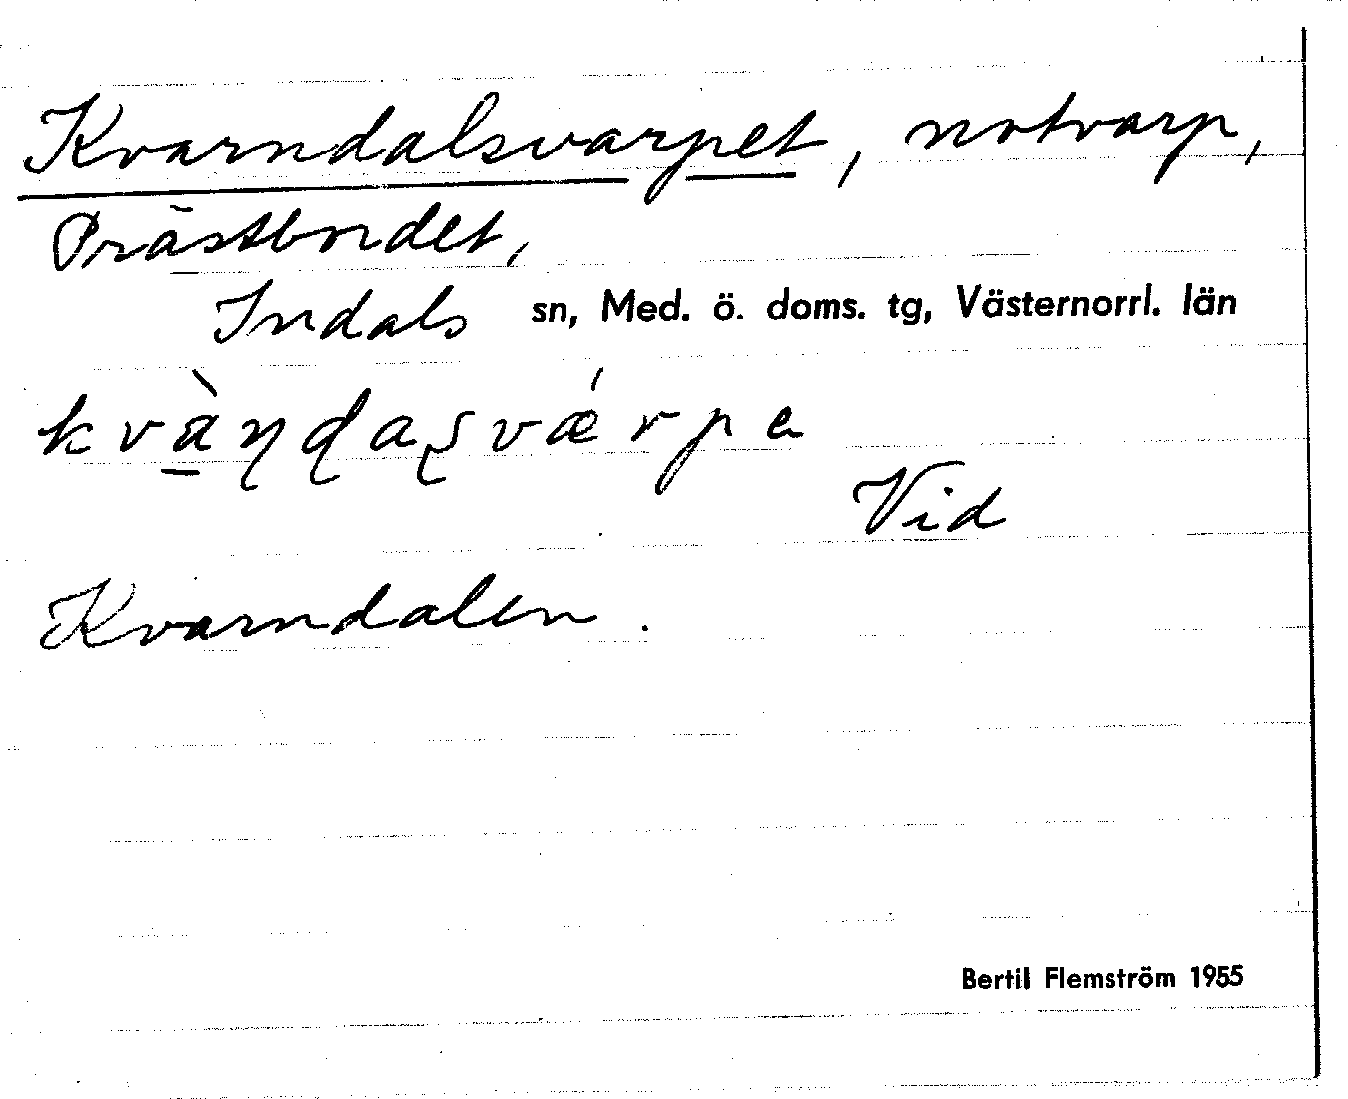 Kvarndalsvarpet, notvarp,
Prästbordet,
Indals sn, Med. ö. doms. tg, Västernorrl. län
kvà̱ɳɖaʂvǽrpe
Vid
Kvarndalen.
Bertil Flemström 1955